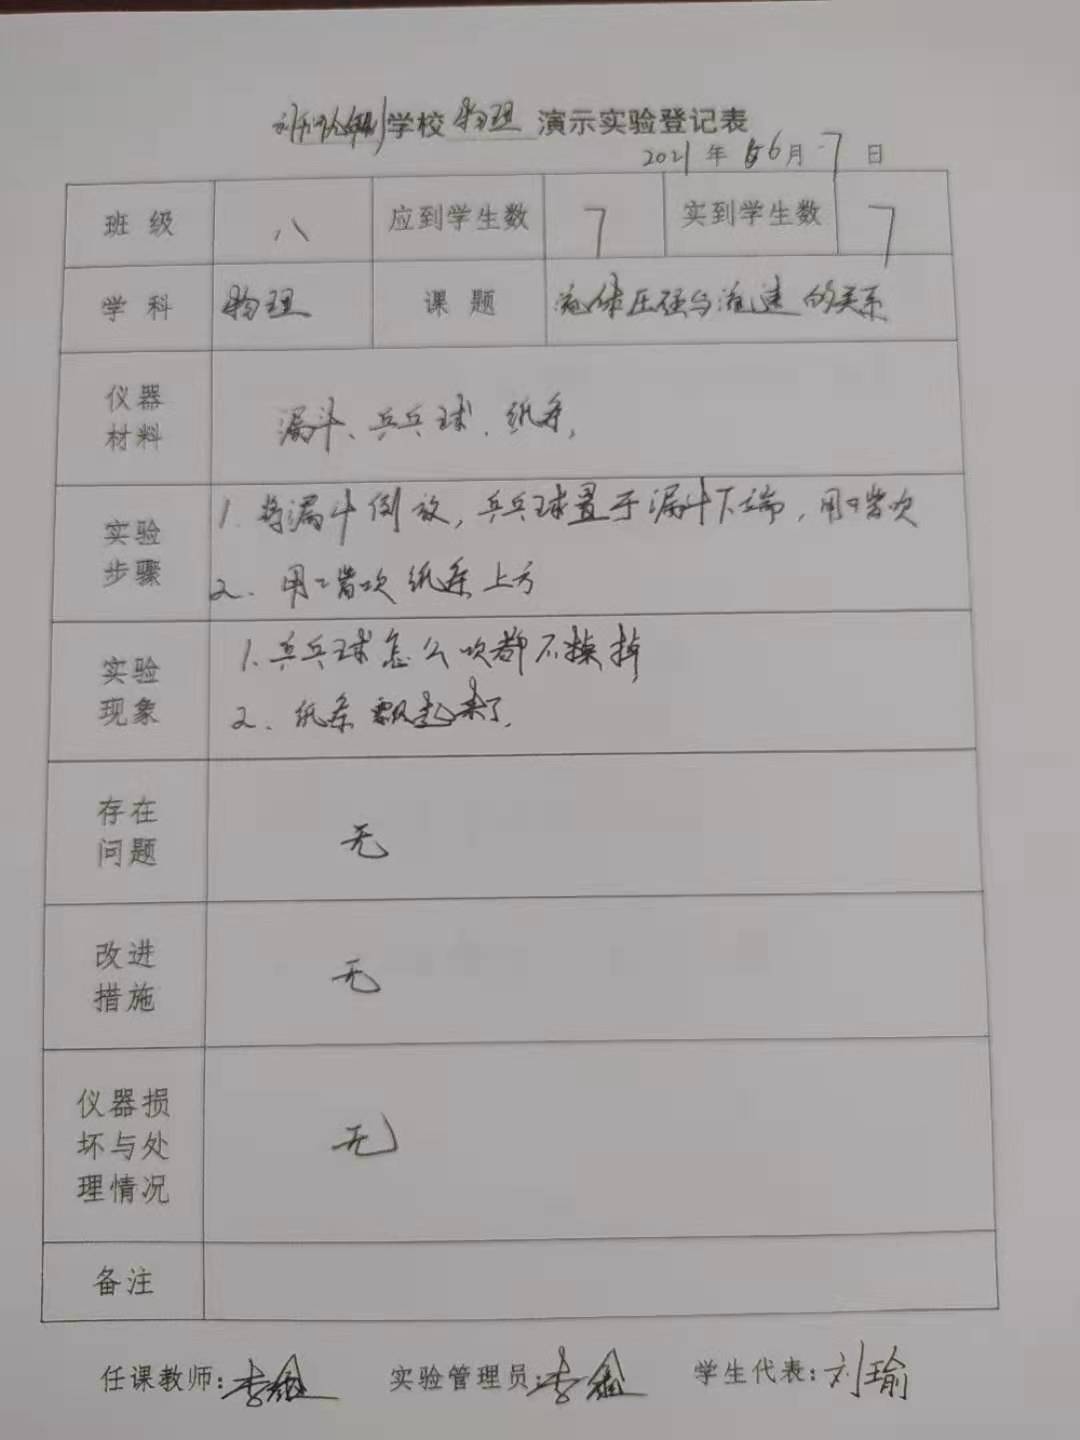 学校 物理 演示实验登记表
2021 年 6 月 7 日
班 级 八 应到学生数 7 实到学生数 7
学 科 物理 课 题 流体压强与流速的关系
仪器
材料
漏斗、乒乓球、纸条,
实验
步骤
1. 将漏斗倒放, 乒乓球置于漏斗下端, 用嘴吹
2. 用嘴吹纸条上方
实验
现象
1. 乒乓球怎么吹都不掉
2. 纸条飘起来了.
存在
问题
无
改进
措施
无
仪器损
坏与处
理情况
无
备注
任课教师: 李 实验管理员: 李 学生代表: 刘瑜